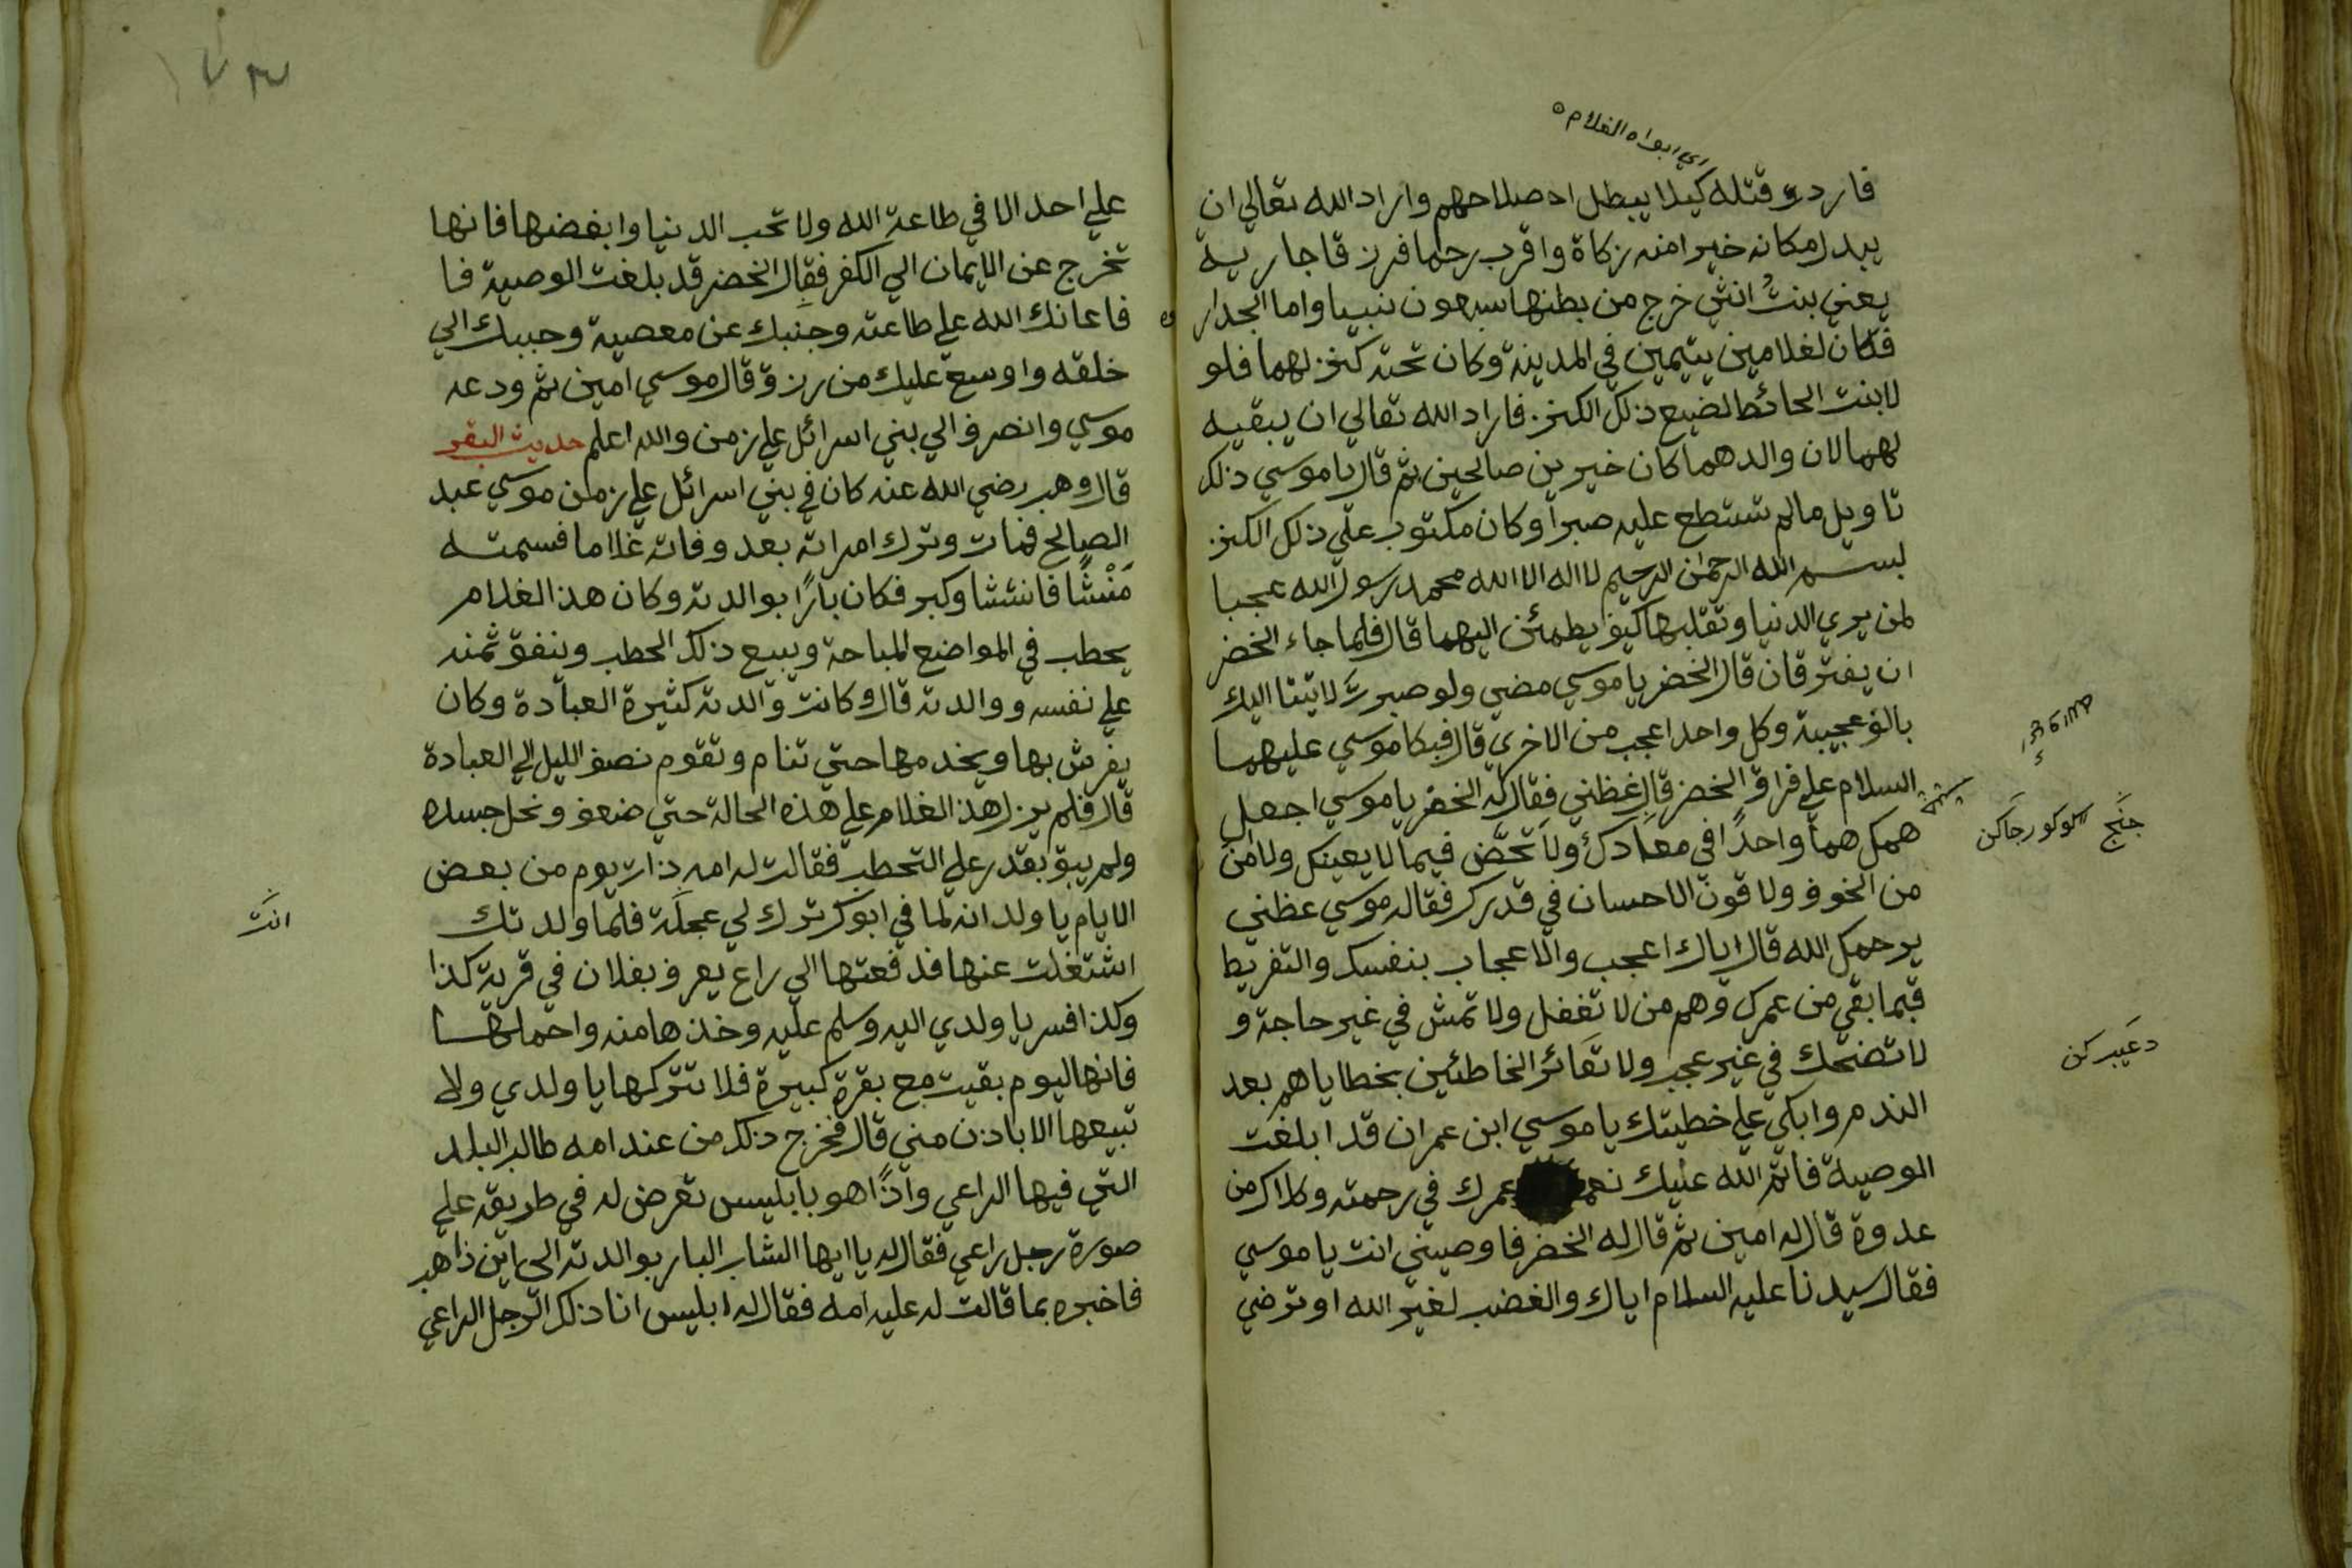 اي ابواه الغلام
فاردت قتله كيلا يبطل اصلاحهم واراد الله تعالي ان
يبدل مكانه خيرا منه زكاة واقرب رحما فرزقا جارية
يعني بنت انثي خرج من بطنها سبعون نبيا واما الجدار
فكان لغلامين يتيمين في المدينة وكان تحته كنز لهما فلو
لابنت الحائط لضيع ذلك الكنز فاراد الله تعالي ان يبقيه
لهما لان والدهما كان خيرين صالحين ثم قال يا موسي ذلك
تاويل مالم تستطع عليه صبرا وكان مكتوب علي ذلك الكنز
بسم الله الرحمن الرحيم لا اله الا الله محمد رسول الله عجبا
لمن يري الدنيا وتقلبها كيف يطمئن اليهما قال فلما جاء الخضر
ان يفترقان قال الخضر يا موسي مضي ولو صبرت لاتيتا اليك
بالف عجيبة وكل واحد اعجب من الاخري قال فبكا موسي عليهما
السلام علي فراق الخضر قال عظني فقال له الخضر يا موسي اجعل
همك هما واحدا في معادك ولا تخض فيما لا يعينك ولا من
من الخوف ولا قوت الاحسان في قدرك فقاله موسي عظني
يرحمك الله قال اياك اعجب والاعجاب بنفسك والتفريط
فيما بقي من عمرك وهم من لا تغفل ولا تمش في غير حاجة و
لا تضحك في غير عجب ولا تعائر الخاطئين بخطاياهم بعد
الندم وابكي علي خطيتك يا موسي ابن عمران قد ابلغت
الوصية فاتم الله عليك عمرك في رحمته وكلاك من
عدوة قال له امين ثم قال له الخضر فاوصيني انت يا موسي
فقال سيدنا عليه السلام اياك والغضب لغير الله او ترضي
دعيبركن
علي احد الا في طاعة الله ولا تحب الدنيا وابغضها فانها
تخرج عن الايمان الي الكفر فقال الخضر قد بلغت الوصية فا
فاعانك الله علي طاعته وجنبك عن معصية وحببك الي
خلقه واوسع عليك من رزق وقال موسي امين ثم ودعه
موسي وانصرف الي بني اسرائل علي زمن والله اعلم حديث البقر
قال وهب رضي الله عنه كان في بني اسرائل علي زمن موسي عبد
الصالح فمات وترك امراته بعد وفاته غلاما فسمته
منشا فانشئا وكبر فكان بارا بوالدته وكان هذ الغلام
يحطب في المواضع المباحة ويبيع ذلك الحطب وينفق ثمنه
علي نفسه ووالدته قال وكانت والدته كثيرة العبادة وكان
يفرش بها ويخدمها حتي تنام وتقوم نصف الليل الي العبادة
قال فلم يزل هذ الغلام علي هذه الحالة حتي ضعف ونحل جسده
ولم يبق بقدر علي التحطب فقالت له امه ذات يوم من بعض
الايام يا ولد انه لما في ابوك ترك لي عجلة فلما ولدتك
اشتغلت عنها فدفعتها الي راع يعرف بفلان في قرية كذا
وكذا فسر يا ولدي اليه وسلم عليه وخذها منه واحملها
فانها اليوم بقيت مع بقرة كبيرة فلا تتركها يا ولدي ولا
تبيعها الا باذن مني قال فخرج ذلك من عند امه طالب البلد
التي فيها الراعي واذا هو بابليس تعرض له في طريقه علي
صورة رجل راعي فقال له يا ايها الشاب البار بوالدته الي اين ذاهب
فاخبره بما قالت له عليه امه فقال له ابليس انا ذلك الرجل الراعي
انت